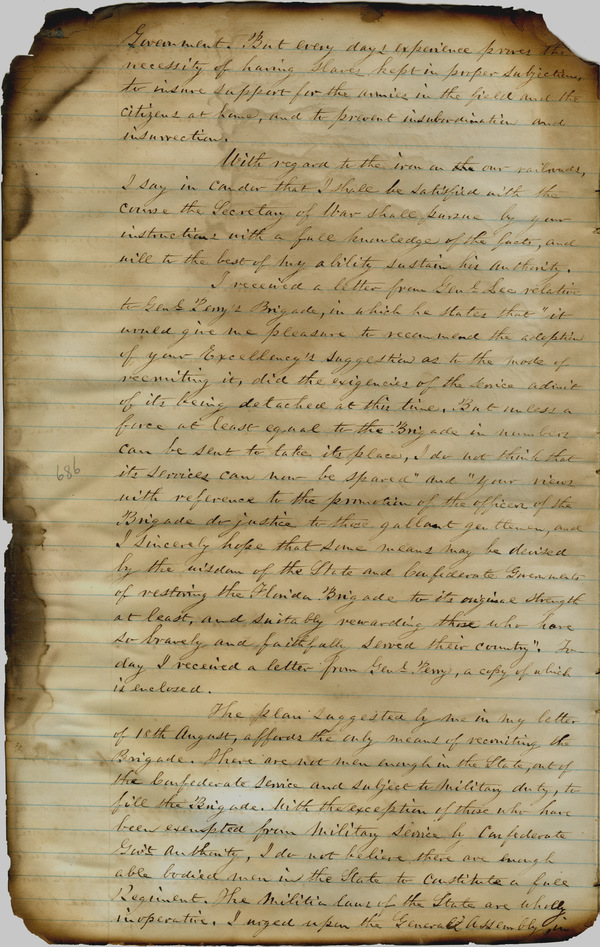 Government. But every days experience proves the
necessity of having slaves kept in proper subjection,
to insure support for the armies in the field and the
citizens at home, and to prevent insubordination and
insurrection.
With regard to the iron on the our railroads,
I say in candor that I shall be satisfied with the
course the Secretary of War shall pursue by your
instructions with a full knowledge of the facts, and
will to the best of my ability sustain his authority.
I received a letter from Genl. Lee relative
to Genl. Perry's Brigade, in which he states that "it
would give me pleasure to recommend the adoption
of your Excellency's suggestion as to the mode of
recruiting it, did the exigencies of the service admit
of its being detached at this time. But unless a
force at least equal to the Brigade in numbers
can be sent to take its place, I do not think that
its services can now be spared" and "Your views
686
with reference to the promotion of the officers of the
Brigade do justice to those gallant gentlemen, and
I sincerely hope that some means may be devised
by the wisdom of the State and Confederate Governments
of restoring the Florida Brigade to its original strength
at least, and suitably rewarding those who have
so bravely and faithfully served their country". To
day I received a letter from Genl. Perry, a copy of which
is enclosed.
The plan suggested by me in my letter
of 18th August, affords the only means of recruiting the
Brigade. There are not men enough in the State, out of
the Confederate service and subject to Military duty, to
fill the Brigade. With the exception of those who have
been exempted from Military service by Confederate
Govt. Authority, I do not believe there are enough
able bodied men in the State to constitute a full
Regiment. The Militia laws of the State are wholly
inoperative. I urged upon the General Assembly, in